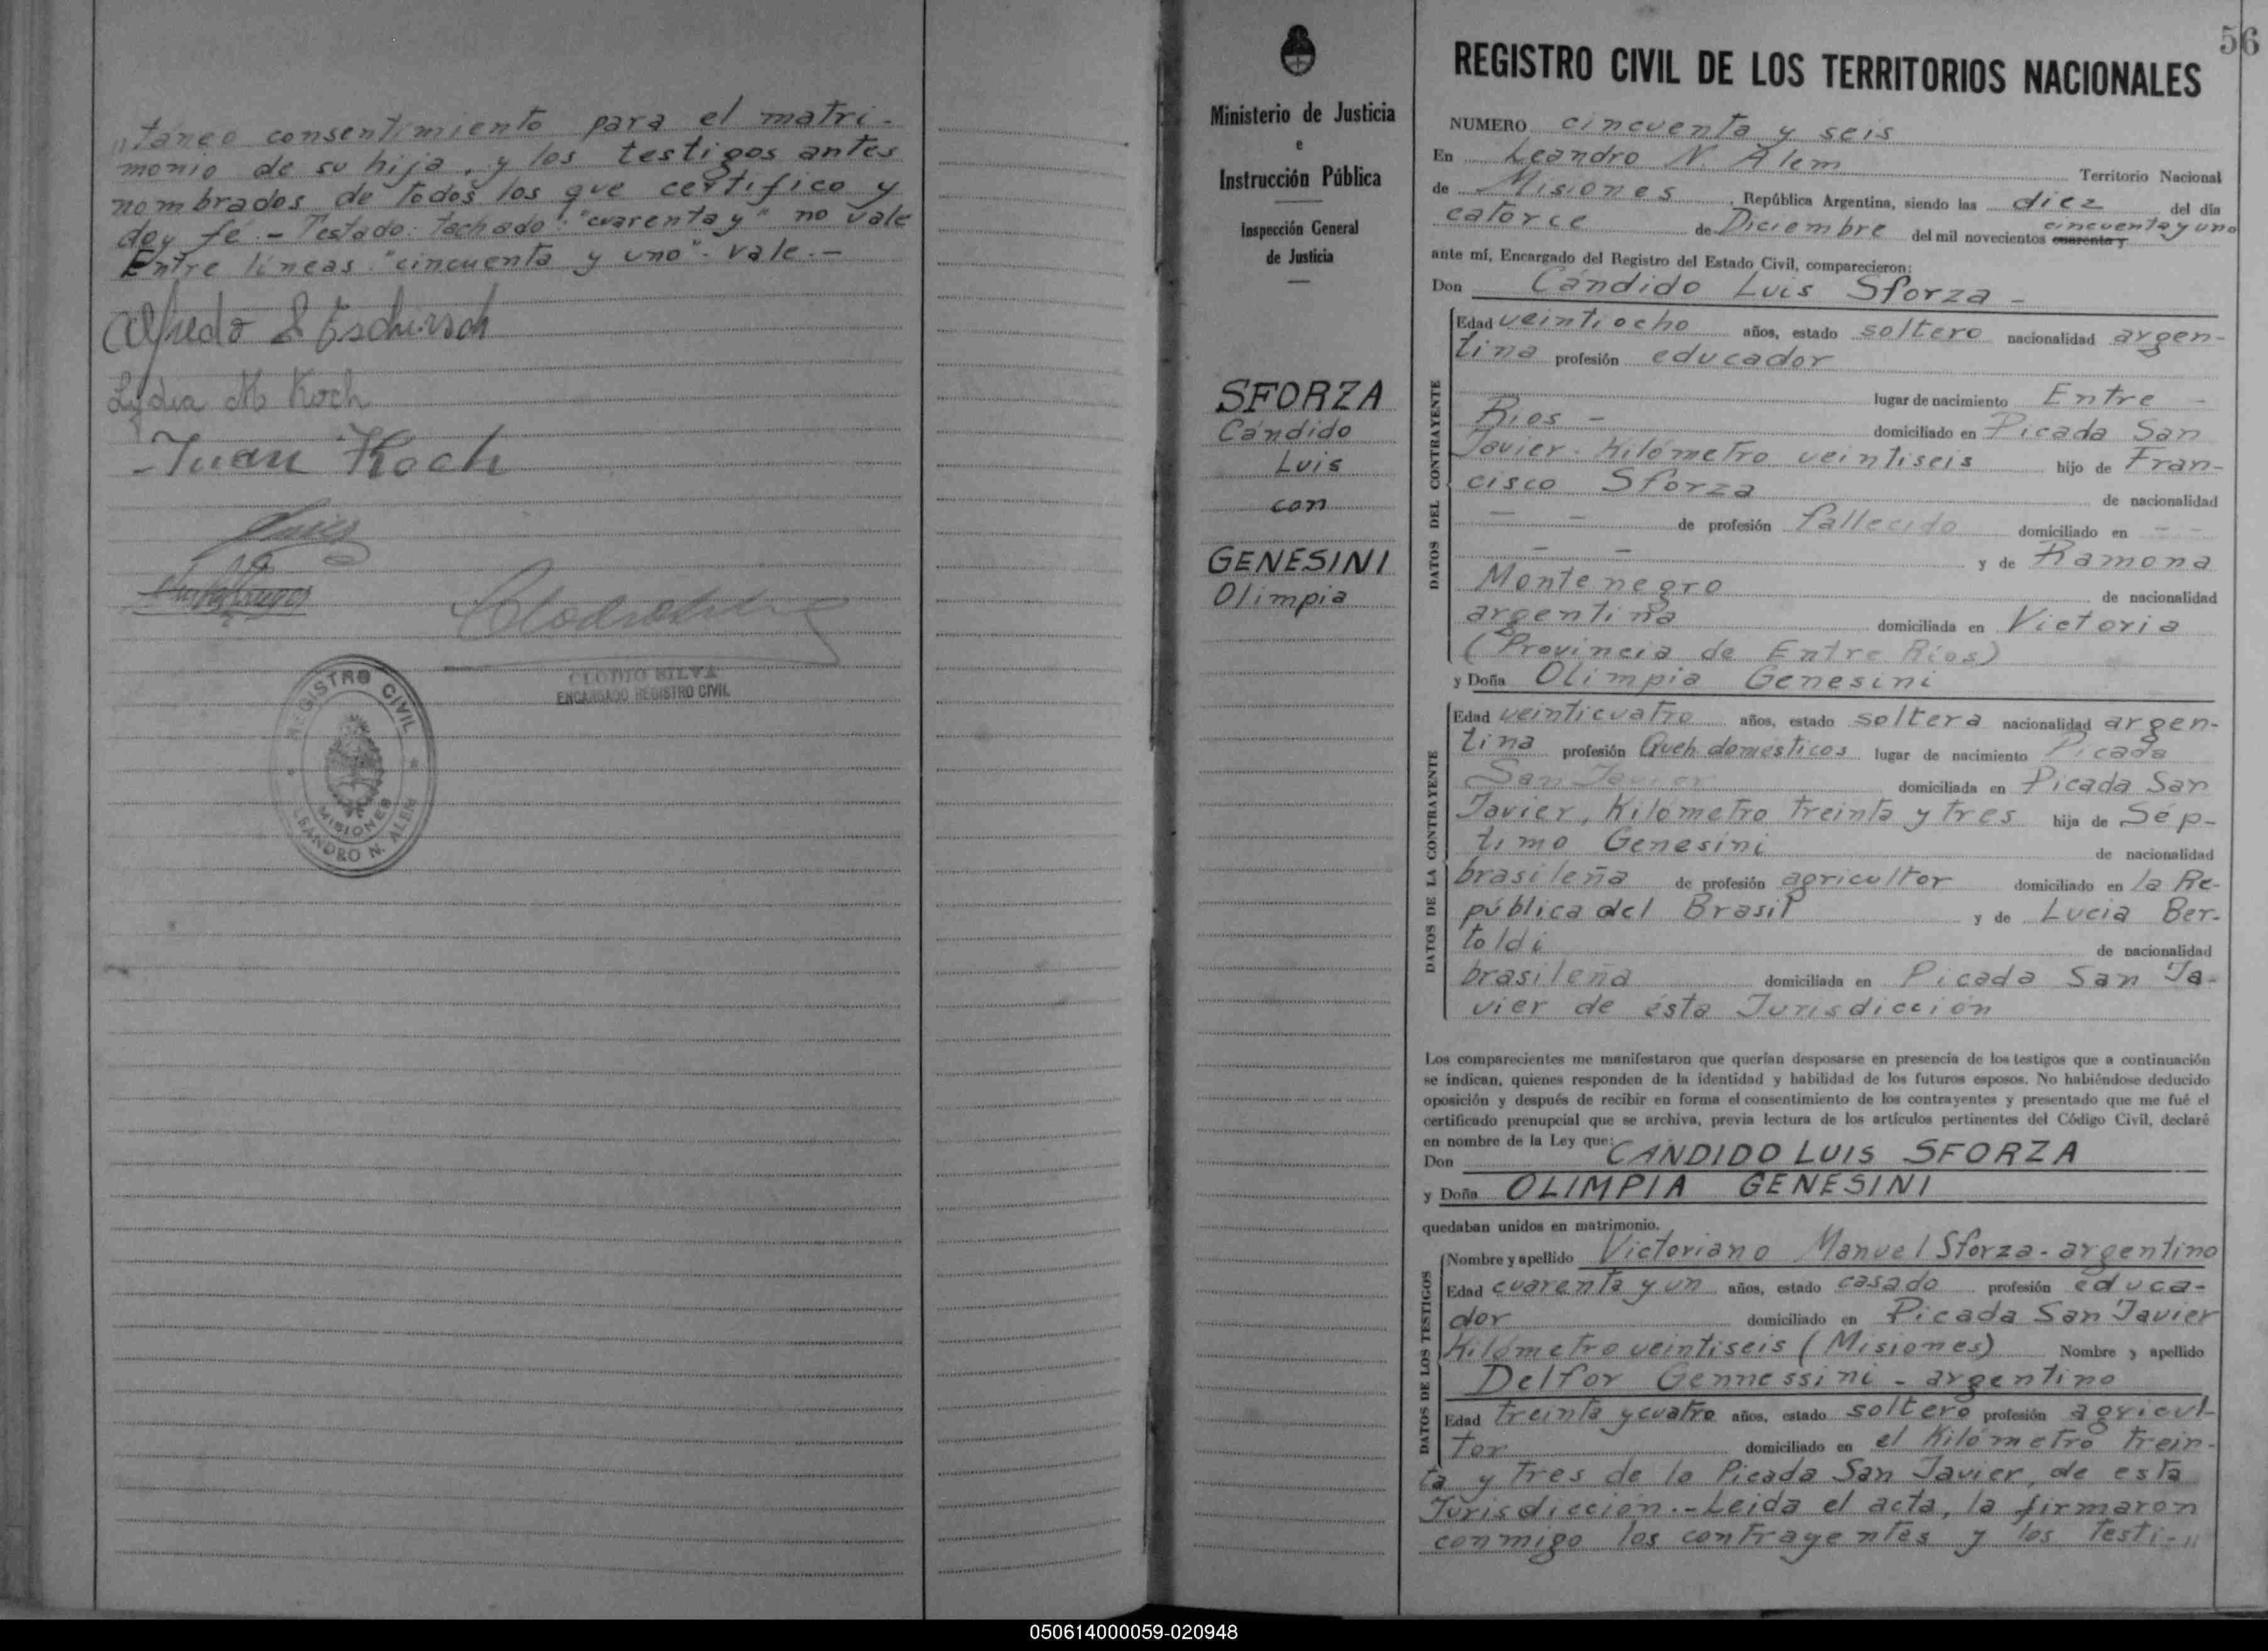 „táneo consentimiento para el matri-
monio de su hija, y los testigos antes
nombrados de todos los que certifico y
doy fé.- Testado: tachado: "cuarenta y" no vale
Entre líneas: "cincuenta y uno". vale.-
Alfredo
Lydia M Koch
Juan Koch
CLODIO SILVA
ENCARGADO REGISTRO CIVIL
REGISTRO CIVIL
MISIONES
LEANDRO N. ALEM
Ministerio de Justicia
e
Instrucción Pública
Inspección General
de Justicia
SFORZA
Cándido
Luis
con
GENESINI
Olimpia
56
REGISTRO CIVIL DE LOS TERRITORIOS NACIONALES
NUMERO cincuenta y seis
En Leandro N. Alem Territorio Nacional
de Misiones, República Argentina, siendo las diez del día
cincuenta y uno
catorce de Diciembre del mil novecientos cuarenta y
ante mí, Encargado del Registro del Estado Civil, comparecieron:
Don Cándido Luis Sforza -
DATOS DEL CONTRAYENTE
Edad veintiocho años, estado soltero nacionalidad argen-
tina profesión educador
lugar de nacimiento Entre -
Rios - domiciliado en Picada San
Javier. Kilómetro veintiseis hijo de Fran-
cisco Sforza de nacionalidad
- - de profesión fallecido domiciliado en - -
- - y de Ramona
Montenegro de nacionalidad
argentina domiciliada en Victoria
(Provincia de Entre Rios)
y Doña Olimpia Genesini
DATOS DE LA CONTRAYENTE
Edad veinticuatro años, estado soltera nacionalidad argen-
tina profesión Queh. domésticos lugar de nacimiento Picada
San Javier domiciliada en Picada San
Javier, Kilómetro treinta y tres hija de Sép-
timo Genesini de nacionalidad
brasileña de profesión agricultor domiciliado en la Re-
pública del Brasil y de Lucia Ber-
toldi de nacionalidad
brasileña domiciliada en Picada San Ja-
vier de ésta Jurisdicción
Los comparecientes me manifestaron que querían desposarse en presencia de los testigos que a continuación
se indican, quienes responden de la identidad y habilidad de los futuros esposos. No habiéndose deducido
oposición y después de recibir en forma el consentimiento de los contrayentes y presentado que me fué el
certificado prenupcial que se archiva, previa lectura de los artículos pertinentes del Código Civil, declaré
en nombre de la Ley que:
Don CANDIDO LUIS SFORZA
y Doña OLIMPIA GENESINI
quedaban unidos en matrimonio.
DATOS DE LOS TESTIGOS
Nombre y apellido Victoriano Manuel Sforza - argentino
Edad cuarenta y un años, estado casado profesión educa-
dor domiciliado en Picada San Javier
Kilómetro veintiseis (Misiones) Nombre y apellido
Delfor Gennessini - argentino
Edad treinta y cuatro años, estado soltero profesión agricul-
tor domiciliado en el Kilómetro trein-
ta y tres de la Picada San Javier, de esta
Jurisdicción.- Leida el acta, la firmaron
conmigo los contrayentes y los testi-„
050614000059-020948